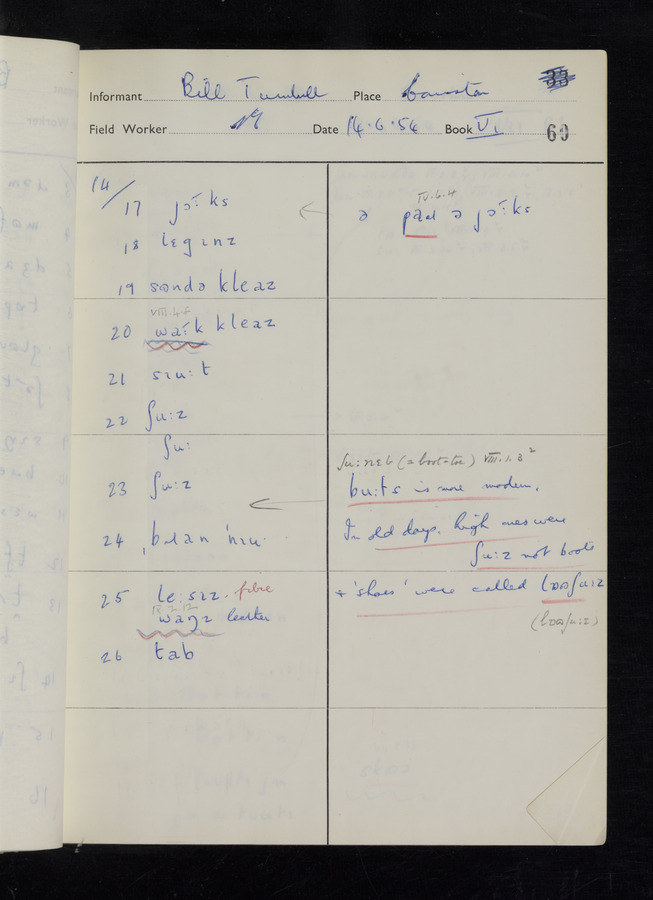 Informant Bill Turnbull Place
Field Worker Date 14.6.54 Book VI 60
14/
17 jɔ:ks
ə paɹ ə jɔ:ks
IV.6.4
18 legɪnz
19 sɒndə kleaz
VIII.4.8
20 wa:k kleaz
21 sɪu:t
22 ʃu:z
ʃu:
ʃu:nɛb (= boot-toe) VIII.1.3
23 ʃu:z
bu:ts is more modern.
24
In old days high ones were
ʃu:z not boots
25 le:sɪz - fibre
IX.2.12
waŋz leather
+ 'shoes' were called lɔəʃu:z
(lɔəʃu:z)
26 tab